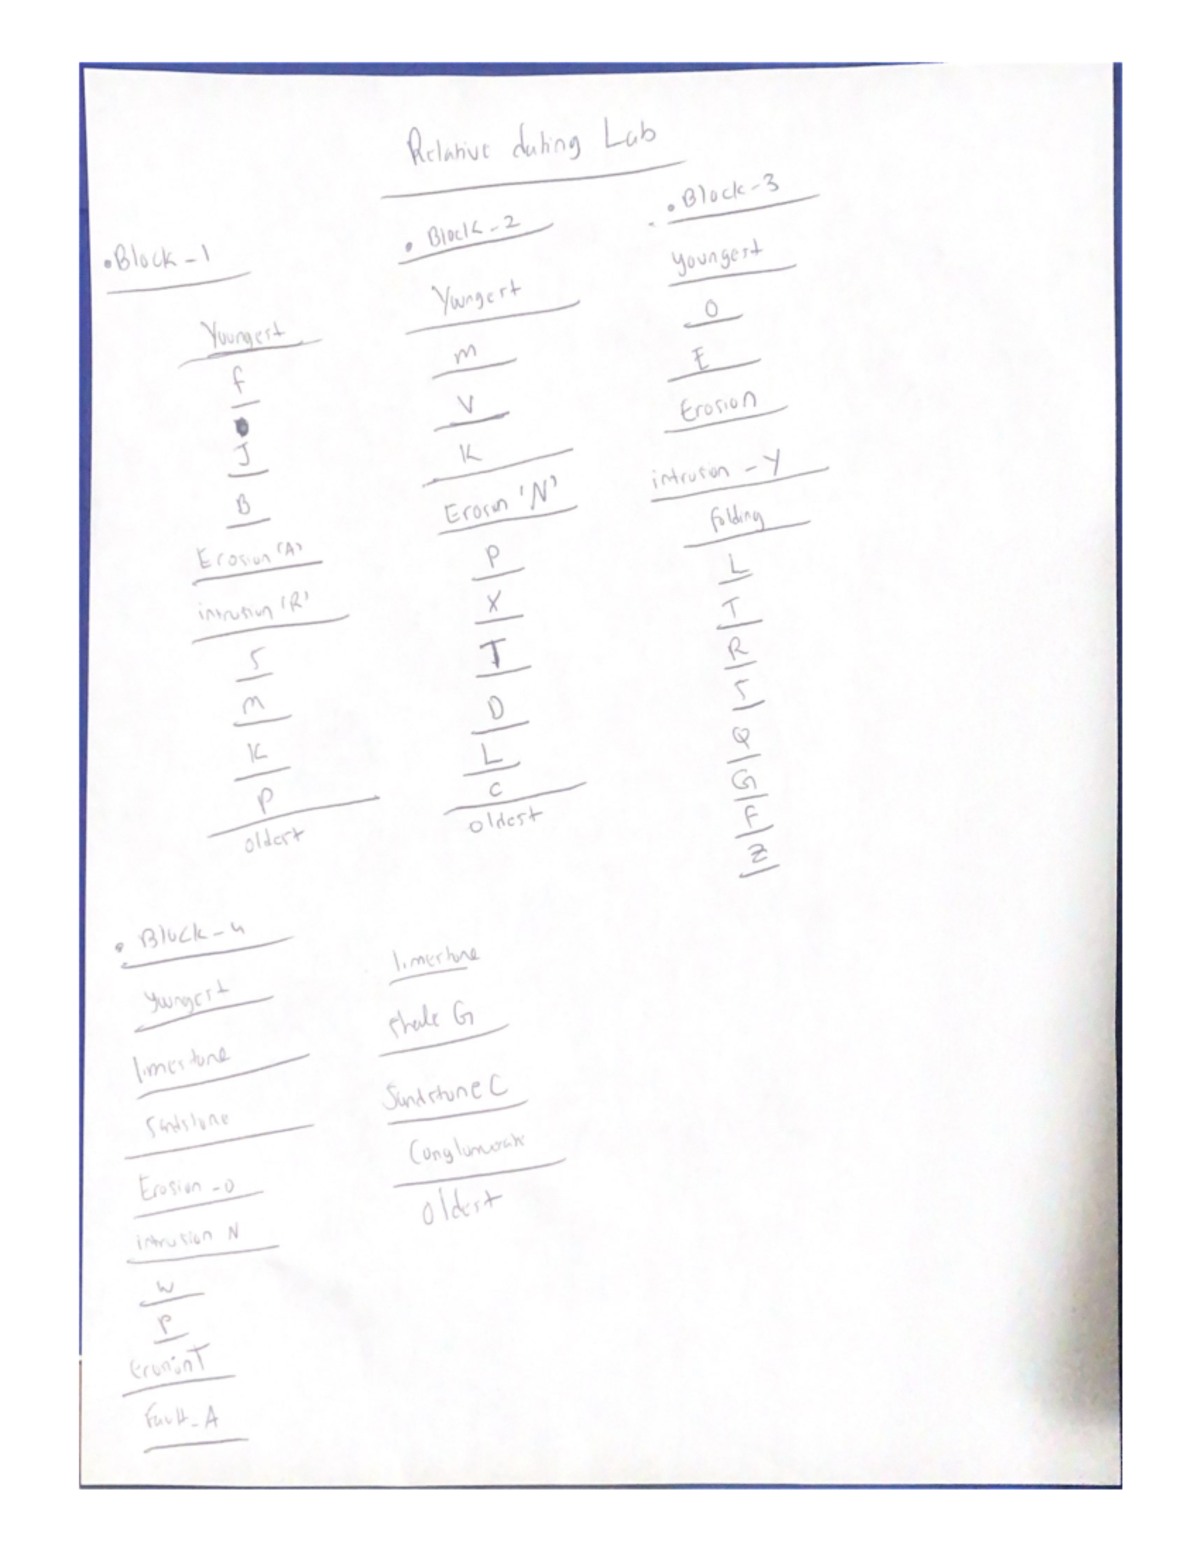 Relative dating Lab
• Block - 1
Youngest
f
J
B
Erosion 'A'
intrusion 'R'
S
m
K
P
oldest
• Block - 2
Youngest
m
V
K
Erosion 'N'
P
X
T
D
L
C
oldest
• Block - 3
youngest
O
E
Erosion
intrusion - Y
folding
L
T
R
S
Q
G
F
Z
• Block - 4
Youngest
limestone
Sandstone
Erosion - O
intrusion N
W
P
Erosion T
Fault - A
limestone
shale G
Sandstone C
Conglomerate
oldest